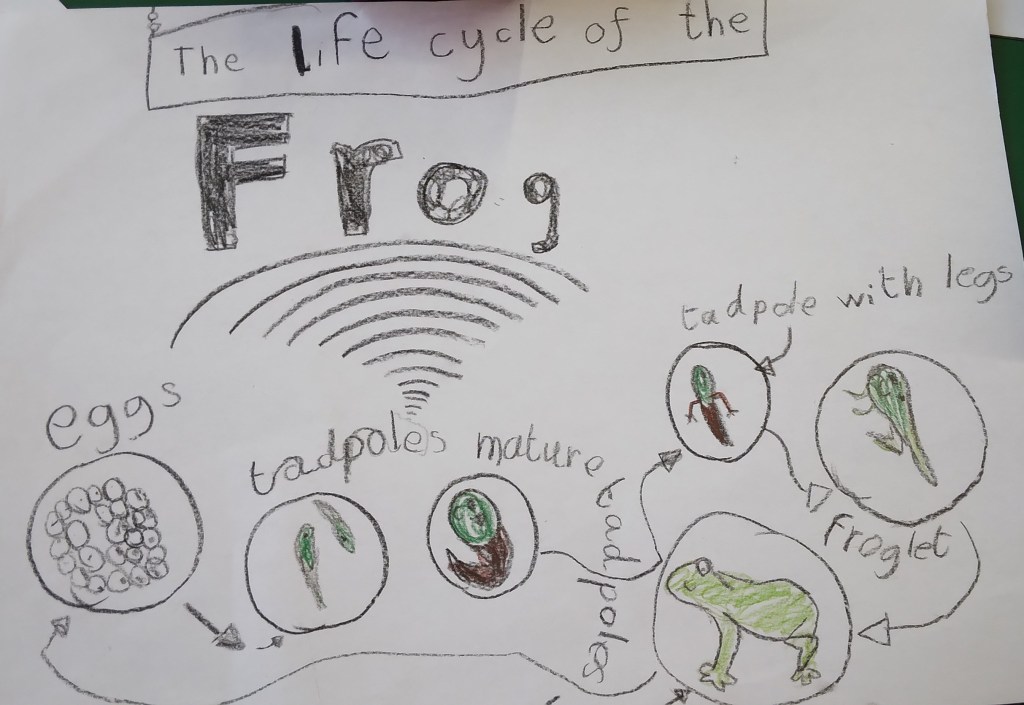 The Life cycle of the
Frog
tadpole with legs
eggs
tadpoles
mature
tadpoles
froglet